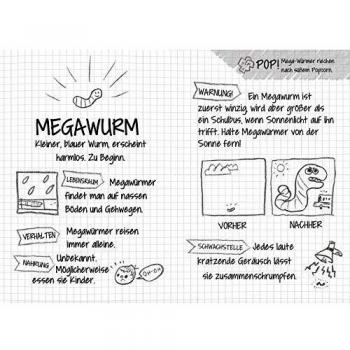 MEGAWURM
Kleiner, blauer Wurm, erscheint
harmlos. Zu Beginn.
LEBENSRAUM Megawürmer
findet man auf nassen
Böden und Gehwegen.
VERHALTEN Megawürmer reisen
immer alleine.
NAHRUNG Unbekannt.
Möglicherweise
essen sie Kinder.
OH-OH
POP! Mega-Würmer riechen
nach süßem Popcorn.
WARNUNG! Ein Megawurm ist
zuerst winzig, wird aber größer als
ein Schulbus, wenn Sonnenlicht auf ihn
trifft. Halte Megawürmer von der
Sonne fern!
VORHER
NACHHER
SCHWACHSTELLE Jedes laute
kratzende Geräusch lässt
sie zusammenschrumpfen.